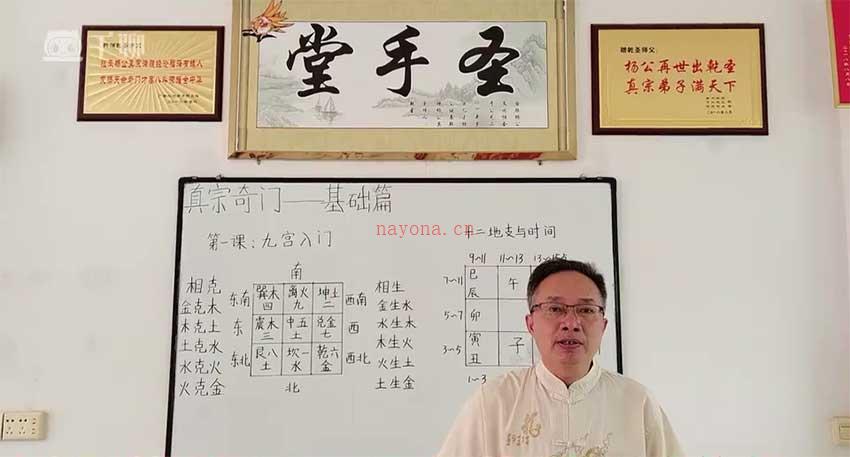 千聊
堂手圣
赠乾圣师父:
杨公再世出乾圣
真宗弟子满天下
真宗奇门——基础篇
nayona.cn
第一课:九宫入门
十二地支与时间
相克
金克木
木克土
土克水
水克火
火克金
南
东南
东
东北
巽木 离火 坤土
四 九 二
震木 中五 兑金
三 土 七
艮八 坎一 乾六
土 水 金
西南
西
西北
北
相生
金生水
水生木
木生火
火生土
土生金
9~11 11~13
7~11
5~7
3~5
1~3
巳 午
辰
卯
寅 子
丑